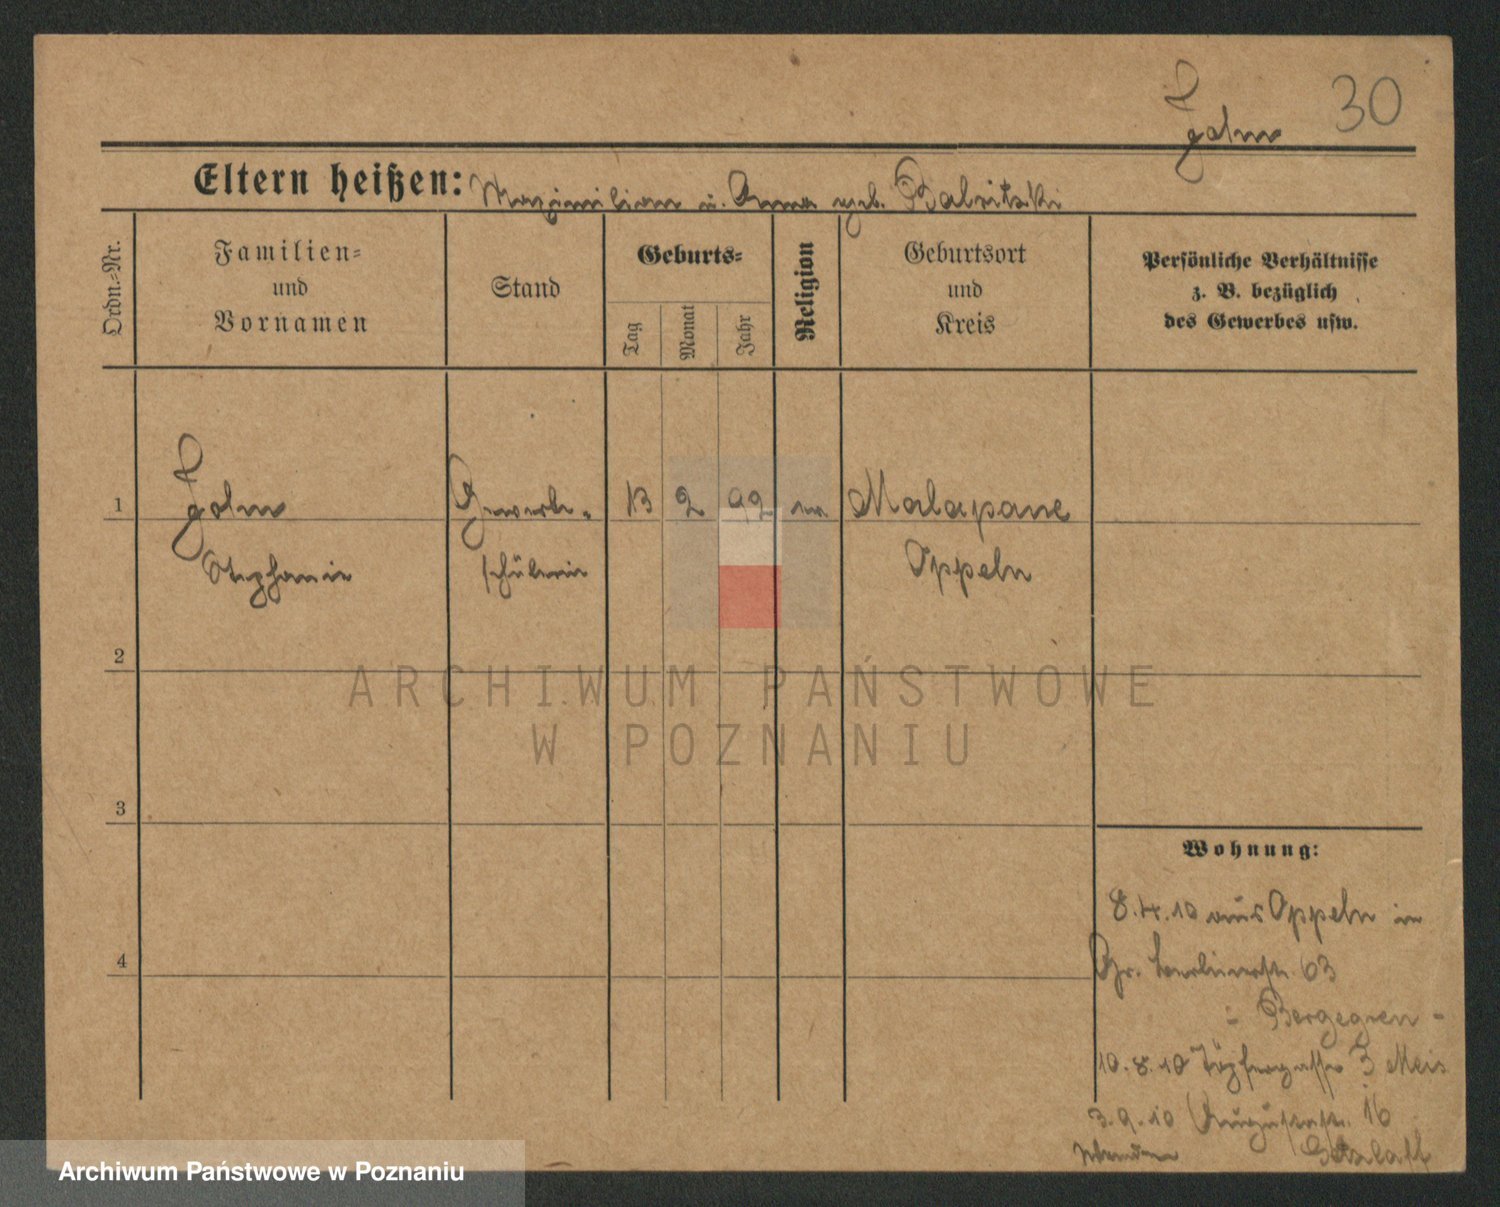 30
Eltern heißen: Maximilian u. Anna geb.
Ordn.-Nr.
Familien-
und
Vornamen
Stand
Geburts-
Tag
Monat
Jahr
Religion
Geburtsort
und
Kreis
Persönliche Verhältnisse
z. B. bezüglich
des Gewerbes usw.
1
Gewerbe-
13 2 92
Malapane
Stephanie
schülerin
Oppeln
2
ARCHIWUM PAŃSTWOWE
W POZNANIU
3
Wohnung:
8.4.10 aus Oppeln in
4
Gr. Berlinerstr. 63
10.8.10 Töpfergasse 3
3.9.10 Augustastr. 16
Archiwum Państwowe w Poznaniu